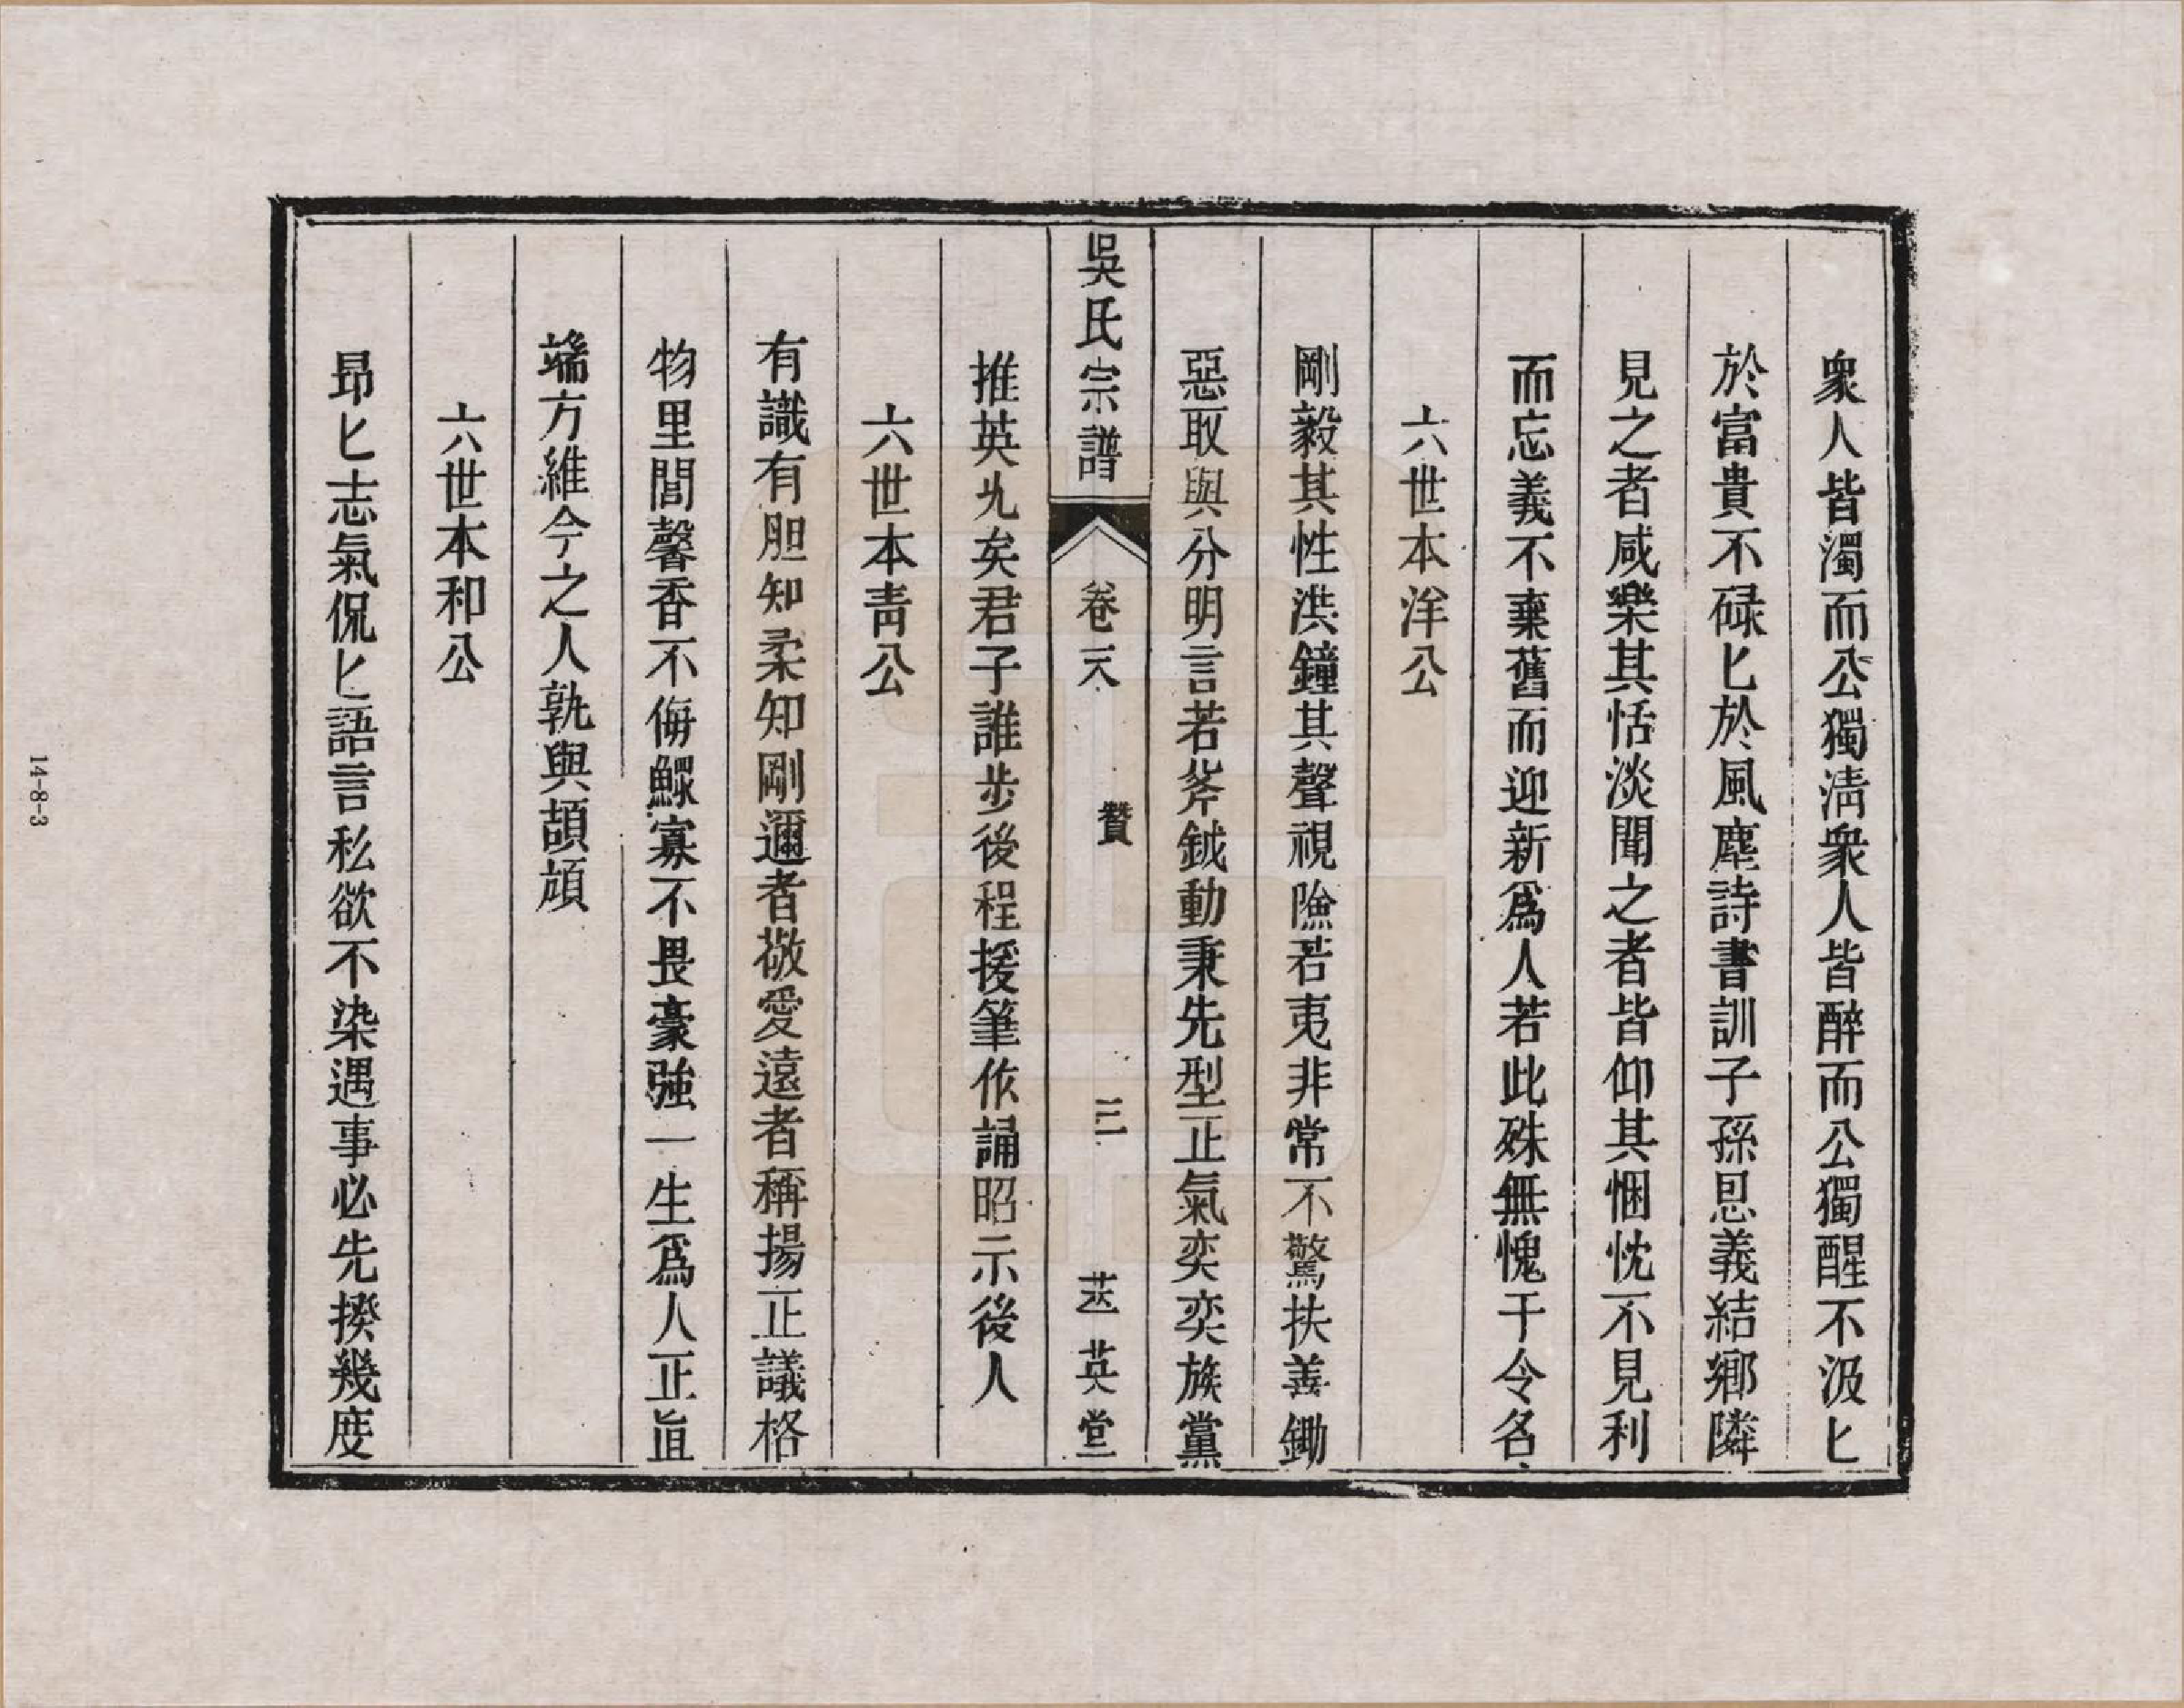 衆人皆濁而公獨淸衆人皆醉而公獨醒不汲匕
於富貴不碌匕於風塵詩書訓子孫恩義結鄉隣
見之者咸樂其恬淡聞之者皆仰其悃忱不見利
而忘義不棄舊而迎新爲人若此殊無愧于令名
六世本洋公
剛毅其性洪鐘其聲視險若夷非常不驚扶善鋤
惡取與分明言若斧鉞動秉先型正氣奕奕族黨
吳氏宗譜
卷一八
贊
三
英堂
推英尣矣君子誰步後程援筆作誦昭示後人
六世本靑公
有識有胆知柔知剛邇者敬愛遠者稱揚正議格
物里閭馨香不侮鰥寡不畏豪強一生爲人正直
端方維今之人孰與頡頏
六世本和公
昻匕志氣侃匕語言私欲不染遇事必先揆幾度
14-8-3